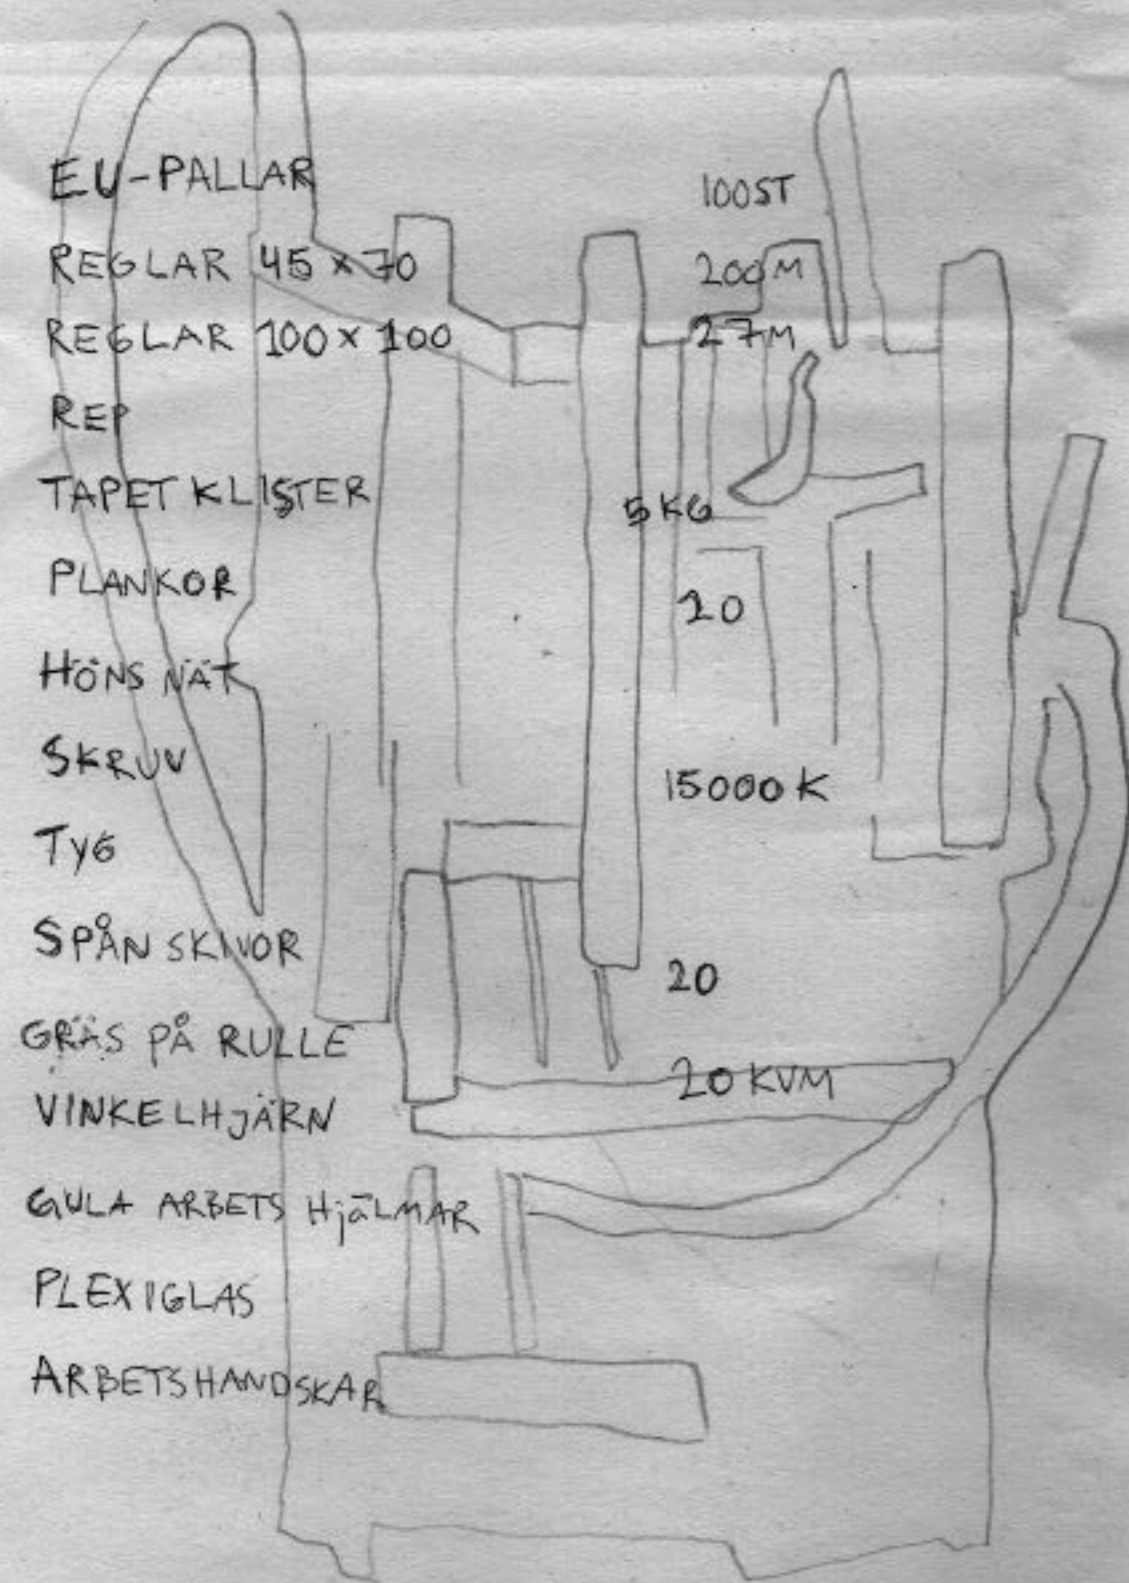 EU-PALLAR 100ST
REGLAR 45 x 70 200M
REGLAR 100 x 100 27M
REP
TAPET KLISTER 5 KG
PLANKOR 20
HÖNS NÄT
SKRUV 15000 K
TYG
SPÅN SKIVOR 20
GRÄS PÅ RULLE 20 KVM
VINKELHJÄRN
GULA ARBETS HjÄLMAR
PLEXIGLAS
ARBETSHANDSKAR